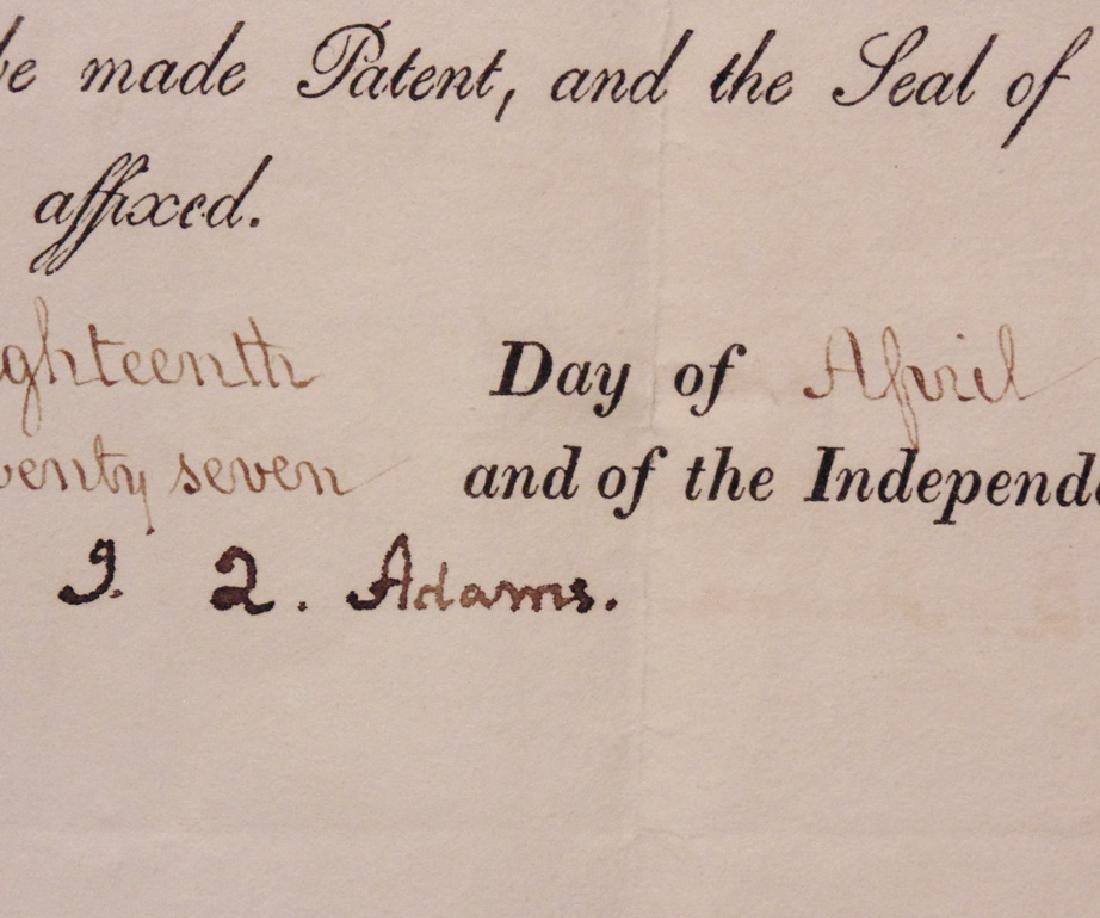 be made Patent, and the Seal of
affixed.
ighteenth Day of April
wenty seven and of the Independe
J. Q. Adams.